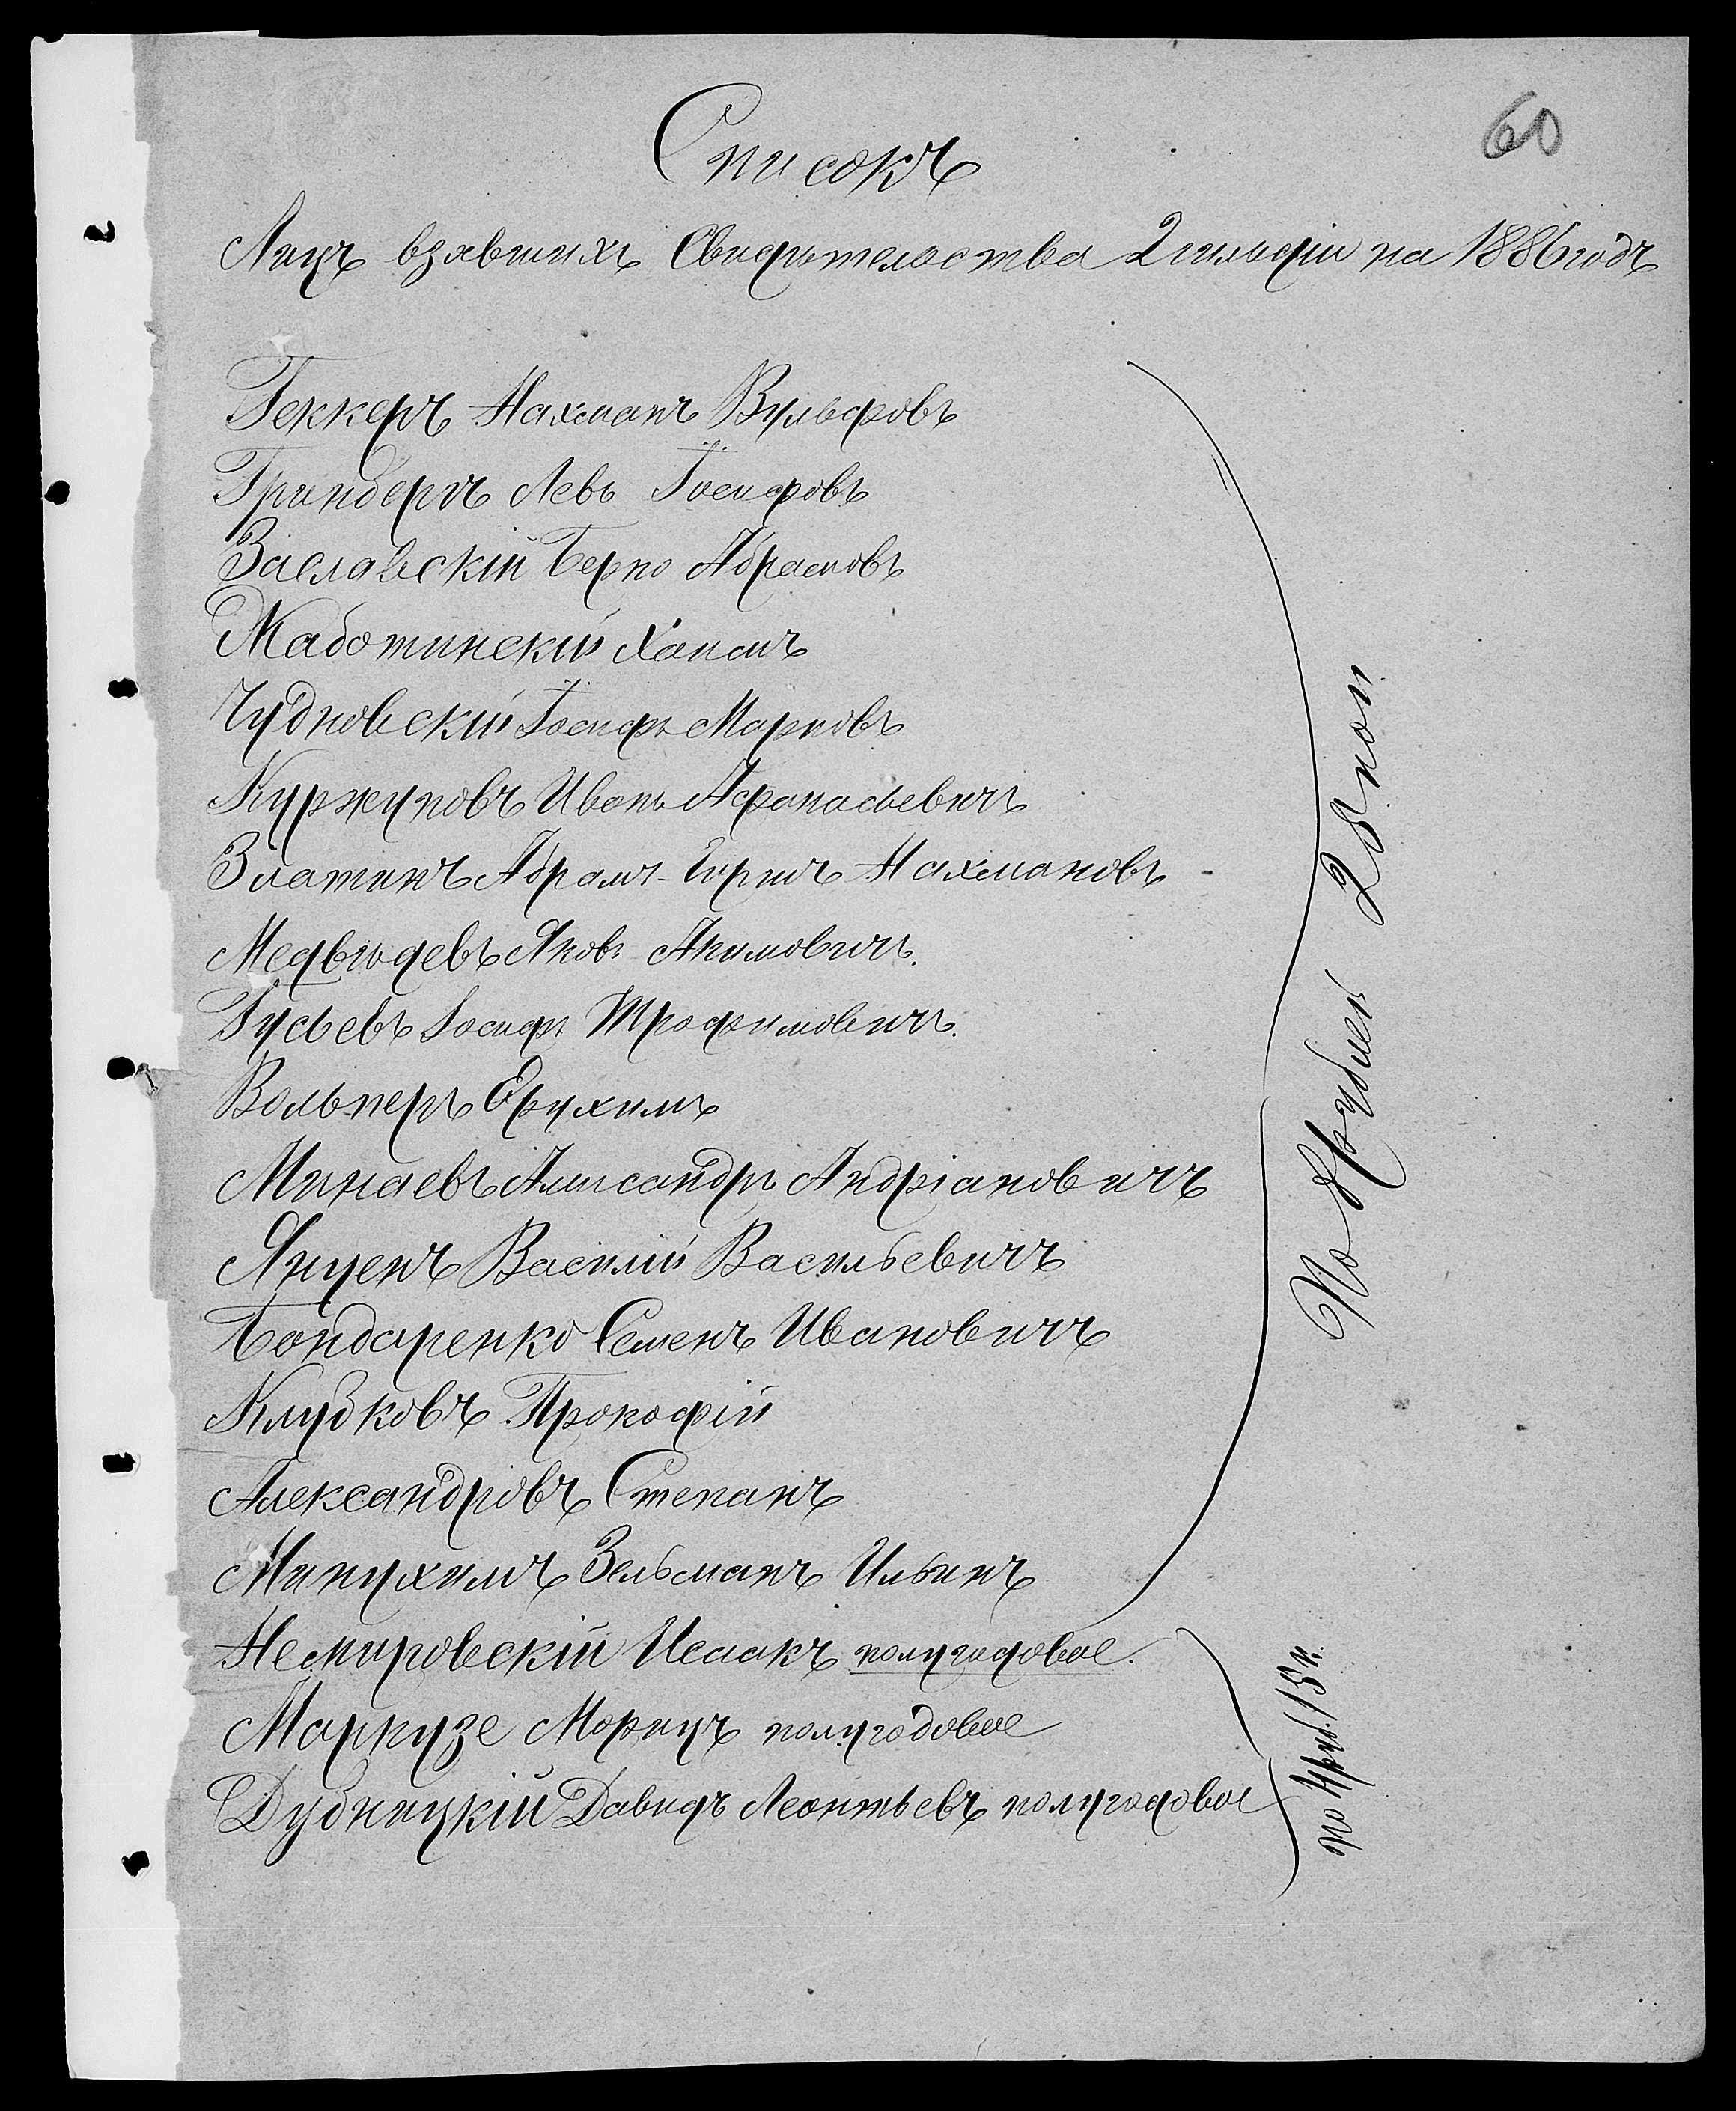 60
Списокъ
Лицъ взявшихъ Свидѣтельства 2 гильдіи на 1886 годъ
Геккеръ Нахманъ Вульфовъ
Гринбергъ Левъ Іосифовъ
Заславскій Берко Абрамовъ
Жаботинскій Хаимъ
Чудновскій Іосифъ Марковъ
Куржуповъ Иванъ Афанасьевичъ
Златинъ Абрамъ-Гершъ Нахмановъ
Медвѣдевъ Яковъ Акимовичъ.
Гусьевъ Іосифъ Трофимовичъ.
Вольперъ Ерухимъ
Минаевъ Александръ Андріановичъ
Яиценъ Василій Васильевичъ
Бондаренко Семенъ Ивановичъ
Клубковъ Прокофій
Александровъ Степанъ
Минухимъ Зельманъ Ильинъ
Немировскій Исаакъ полугодовое.
Маркузе Морицъ полугодовое
Дубницкій Давидъ Леонтьевъ полугодовое
По 8 рублей 28 коп.
по 4 руб. 15 к.